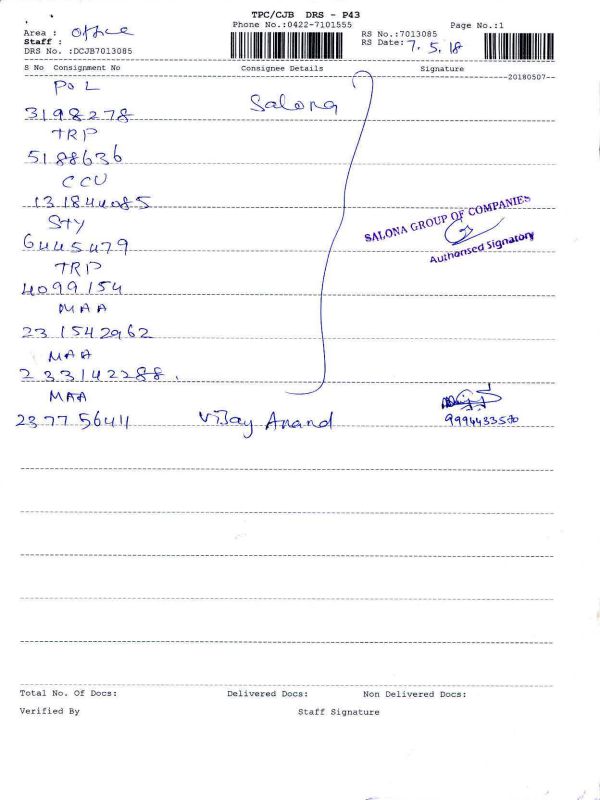 TPC/CJB DRS - P43
Phone No.:0422-7101555
Page No.:1
Area : office
RS No.:7013085
Staff :
RS Date: 7.5.18
DRS No. :DCJB7013085
S No Consignment No Consignee Details Signature
--20180507--
POL
3198278 Salona
TRP
5188636
CCU
131844085
STY
6445479
SALONA GROUP OF COMPANIES
Authorised Signatory
TRP
4099154
MAA
231542962
MAA
233142288.
MAA
237756411 Vijay Anand
9994433570
Total No. Of Docs: Delivered Docs: Non Delivered Docs:
Verified By Staff Signature